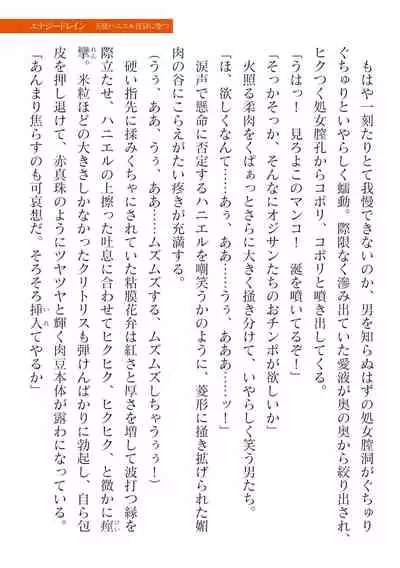 エナジードレイン
もはや一刻たりとて我慢できないのか、男を知らぬはずの処女膣洞がぐちゅり
ぐちゅりといやらしく蠕動。際限なく滲み出ていた愛液が奥の奥から絞り出され、
ヒクつく処女膣孔からコポリ、コポリと噴き出してくる。
「うはっ! 見ろよこのマンコ! 涎を噴いてるぞ!」
「そっかそっか、そんなにオジサンたちのおチンポが欲しいか」
火照る柔肉をくぱぁっとさらに大きく掻き分けて、いやらしく笑う男たち。
「ほ、欲しくなんて……あぅ、ああ……うぅ、あああ……ッ!」
涙声で懸命に否定するハニエルを嘲笑うかのように、菱形に掻き拡げられた媚
肉の谷にこらえがたい疼きが充満する。
(うぅ、ああ、うぅ、ああ……ムズムズする、ムズムズしちゃうぅぅ!)
硬い指先に揉みくちゃにされていた粘膜花弁は紅さと厚さを増して波打つ縁を
際立たせ、ハニエルの上擦った吐息に合わせてヒクヒク、ヒクヒク、と微かに痙
攣。米粒ほどの大きさしかなかったクリトリスも弾けんばかりに勃起し、自ら包
皮を押し退けて、赤真珠のようにツヤツヤと輝く肉豆本体が露わになっている。
「あんまり焦らすのも可哀想だ。そろそろ挿入てやるか」